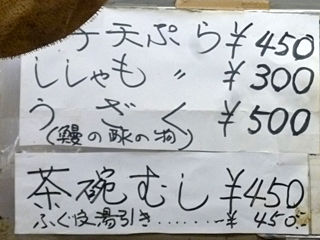 子天ぷら ¥450
ししゃも 〃 ¥300
うざく ¥500
(鰻の酢の物)
茶碗むし ¥450
ふぐ皮湯引き………¥450